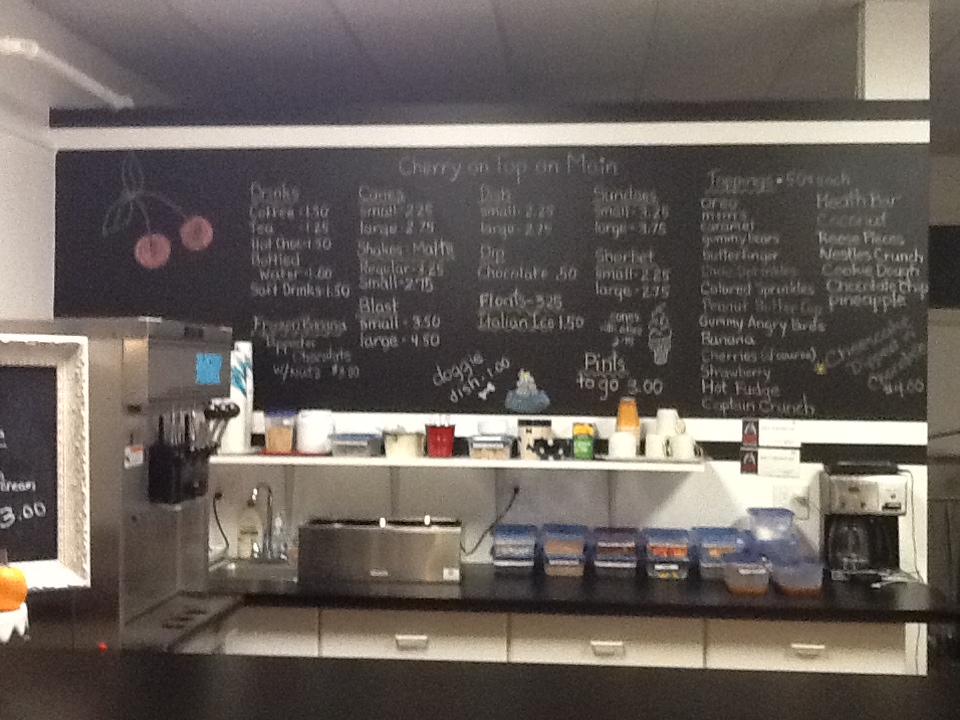 Cherry on Top on Main
Drinks
Coffee 1.50
Tea 1.25
Hot Choc 1.50
Bottled
Water 1.00
Soft Drinks 1.50
w/nuts $3.00
Cones
Small - 2.25
large - 2.75
Shakes - Malts
Regular - 3.25
Small - 2.75
Blast
Small - 3.50
large - 4.50
Dish
Small - 2.25
large - 2.75
Dip
Chocolate .50
Floats - 3.25
Italian Ice 1.50
doggie
dish 1.00
Sundaes
Small - 3.25
large - 3.75
Sherbet
Small - 2.25
large - 2.75
cones
Pints
to go 3.00
Toppings • 50¢ each
Oreo
m&m's
caramel
gummy bears
Butterfinger
Sprinkles
Colored Sprinkles
Peanut Butter Cup
Gummy Angry Birds
Banana
Cherries (of course)
Strawberry
Hot Fudge
Captain Crunch
Heath Bar
Coconut
Reese Pieces
Nestles Crunch
Cookie Dough
Chocolate Chip
pineapple
Cheesecake
Dipped in
$4.00
cream
3.00